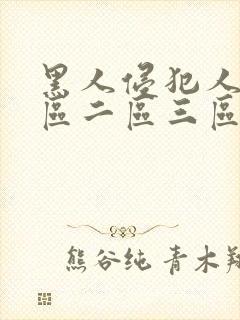 黑人侵犯人
區二區三區
熊谷纯 青木翔